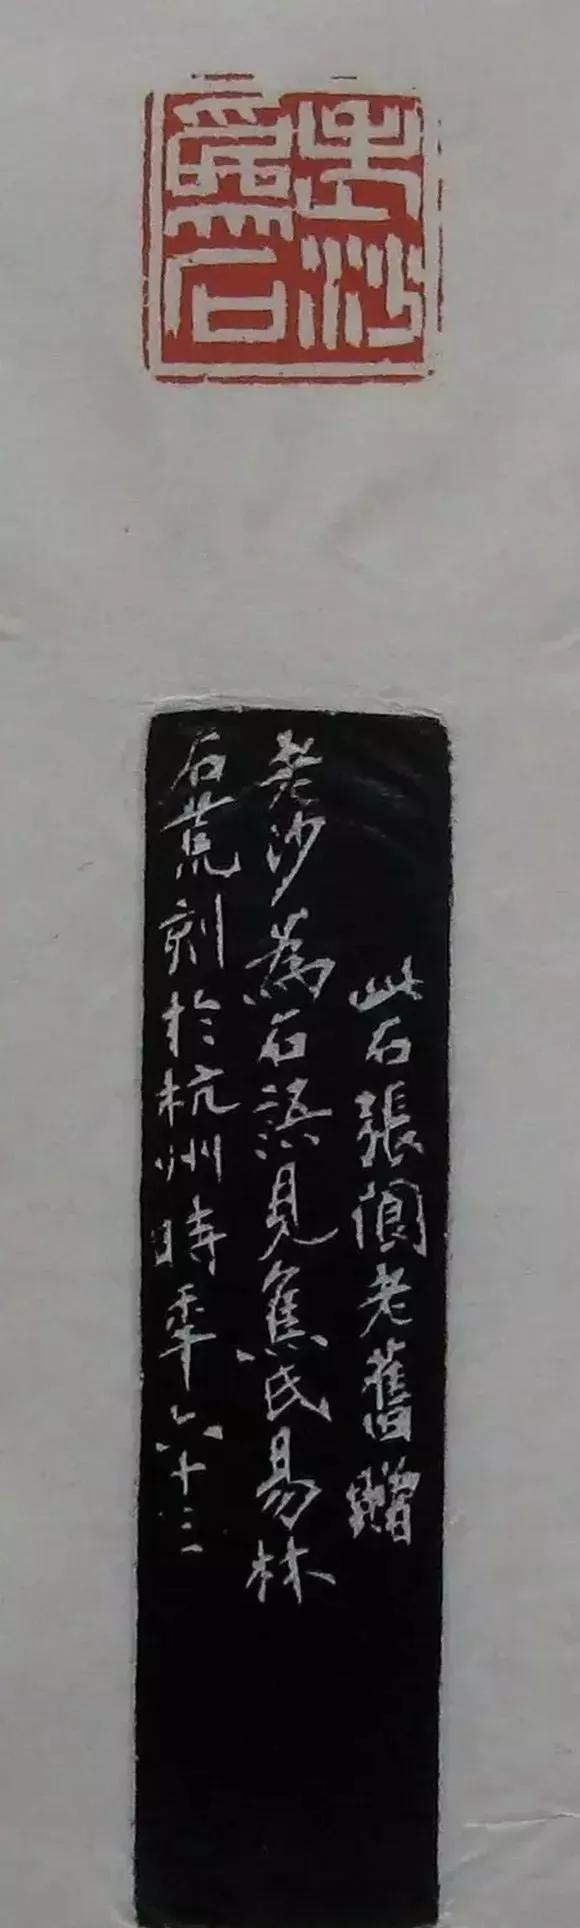 老沙
為石
此石張閬老舊贈
老沙為石語見焦氏易林
石荒刻於杭州時季六十三